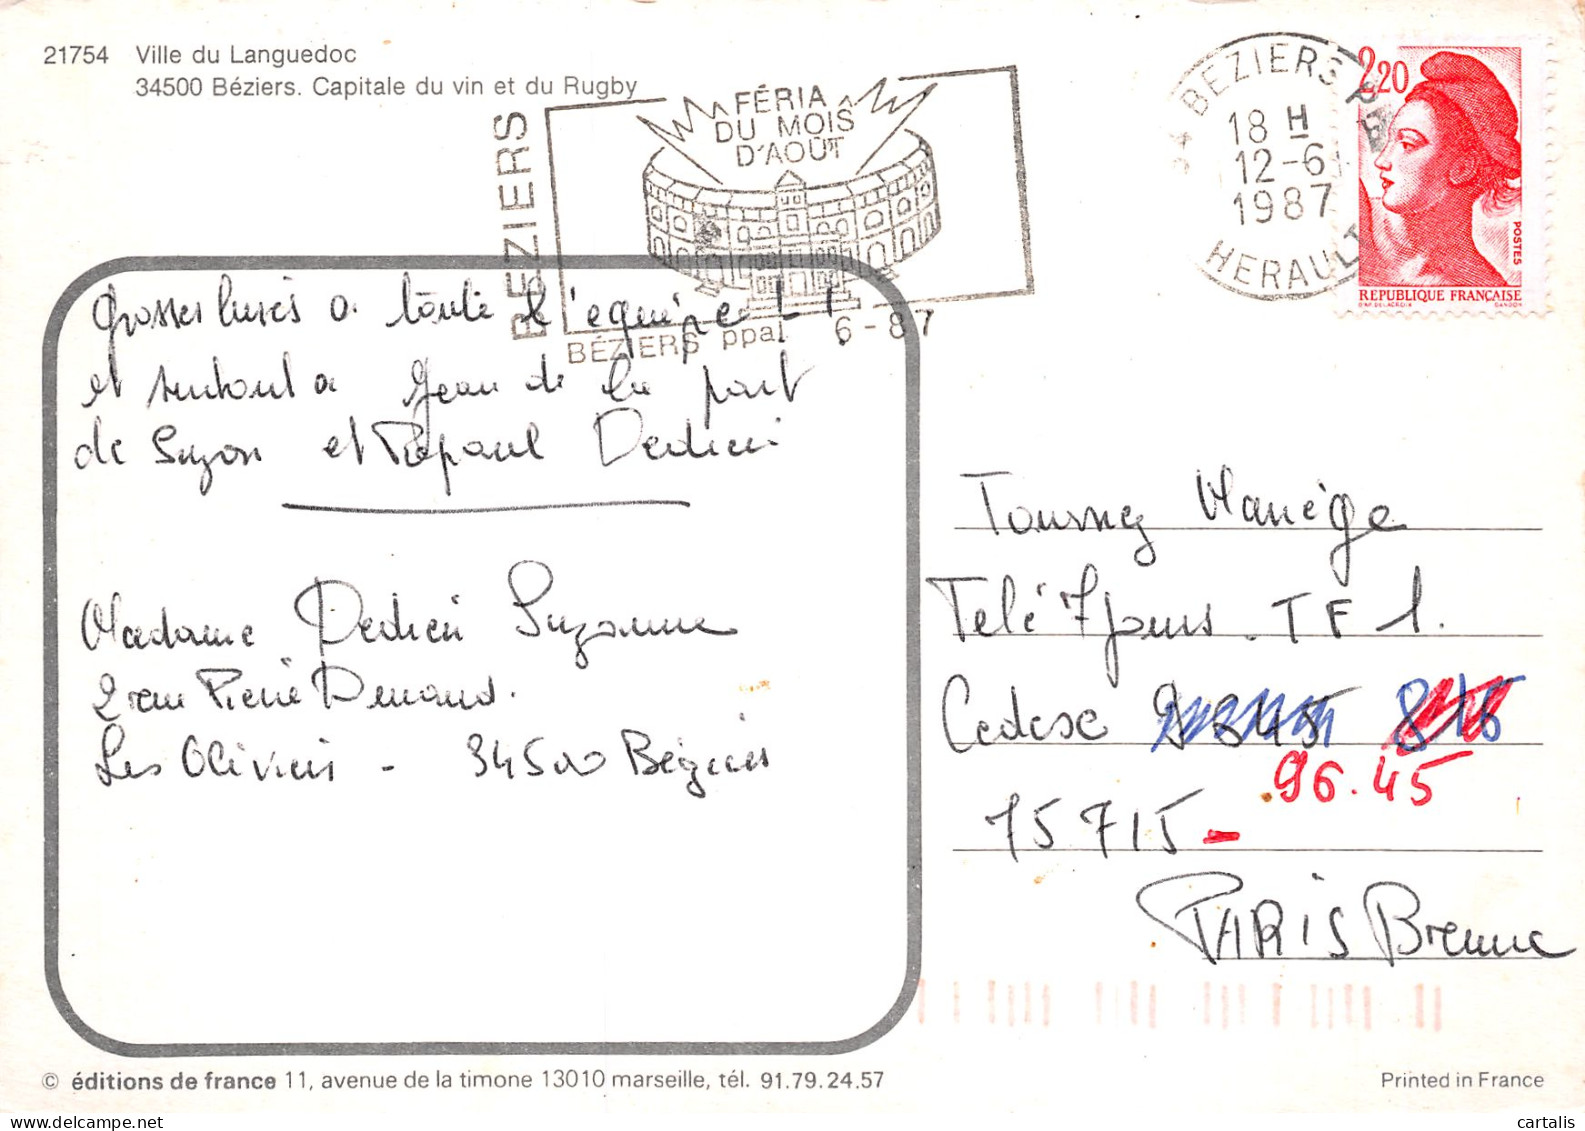 21754 Ville du Languedoc
34500 Béziers. Capitale du vin et du Rugby
BEZIERS
FÉRIA
DU MOIS
D'AOÛT
BÉZIERS ppal 6-87
34 BEZIERS PPAL
18 H
12-6
1987
HERAULT
2,20
POSTES
REPUBLIQUE FRANÇAISE
D'AP. DELACROIX GANDON
Grosses bises a toute l'équipe
et surtout a Jean de la part
de Suzon et Papaul Dedieu
Madame Dedieu Suzanne
2 rue Pierre
Les Oliviers - 34500 Béziers
Tournez Manège
Télé 7 Jours. TF 1.
Cedex
96.45
75715 -
PARIS Brune
© éditions de france 11, avenue de la timone 13010 marseille, tél. 91.79.24.57
Printed in France
cartalis